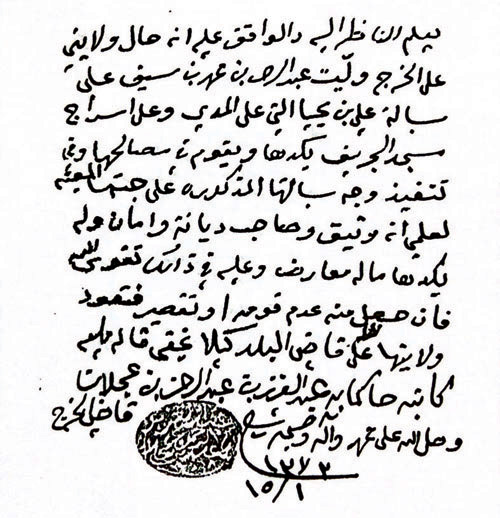 يعلم الناظر اليه والواقف عليه انه حال ولايتي
على الخرج وليت عبدالرحمن بن محمد بن سيف على
سبالة علي بن يحيا التي على المدي وعلى اسراج
مسجد يكدها ويقوم في مصالحها وفي
تنفيذ وجه سبالتها المذكوره على جهتها المعينه
لعلمي انه وثيق وصاحب ديانة وامان وله
يكدها ماله معارض وعليه في ذالك تقوى الله
فان حصل منه عدم قومه او تقصير فتعود
ولايتها على قاضي البلد كيلا يخفى قاله ممليه
كاتبه حاكما به عبد العزيز بن عبدالرحمن بن
قاضي الخرج
وصلى الله على محمد واله وصحبه وسلم
١٣٧٣
١٥/١